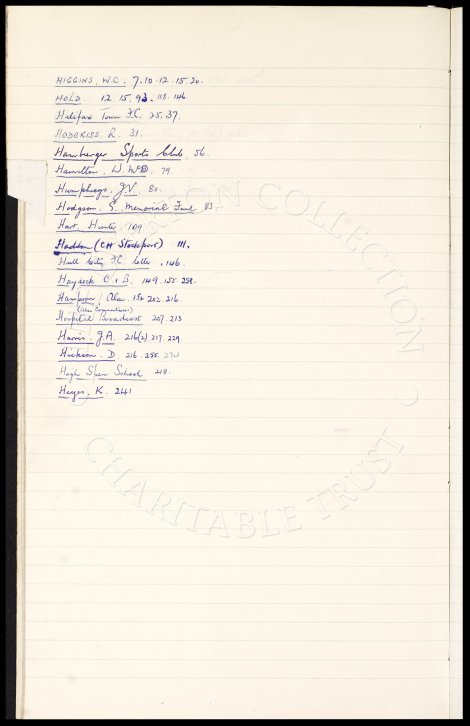 HIGGINS. W.C. 7.10.12.15.20.
HOLD 12.15.93.118.146.
Halifax Town F.C. 25.37.
HODGKISS. R. 31.
Hamburger Sports Club. 56.
Hamilton. W. 79.
Humphreys. J.V. 80.
Hodgson. G. Memorial Fund 83.
Hart. Hunter. 109.
Haddon (CH Stockport) 111.
Hull City F.C. letter. 146.
Haydock C & B. 149.155.258.
Hampson, Alan. 152.202.216.
Hospital Broadcast 207.213
Harris. J.A. 216(2).217.229.
Hickson. D. 216.255.
High Spen School 218.
Hayes. K. 241
COLLECTION
CHARITABLE TRUST